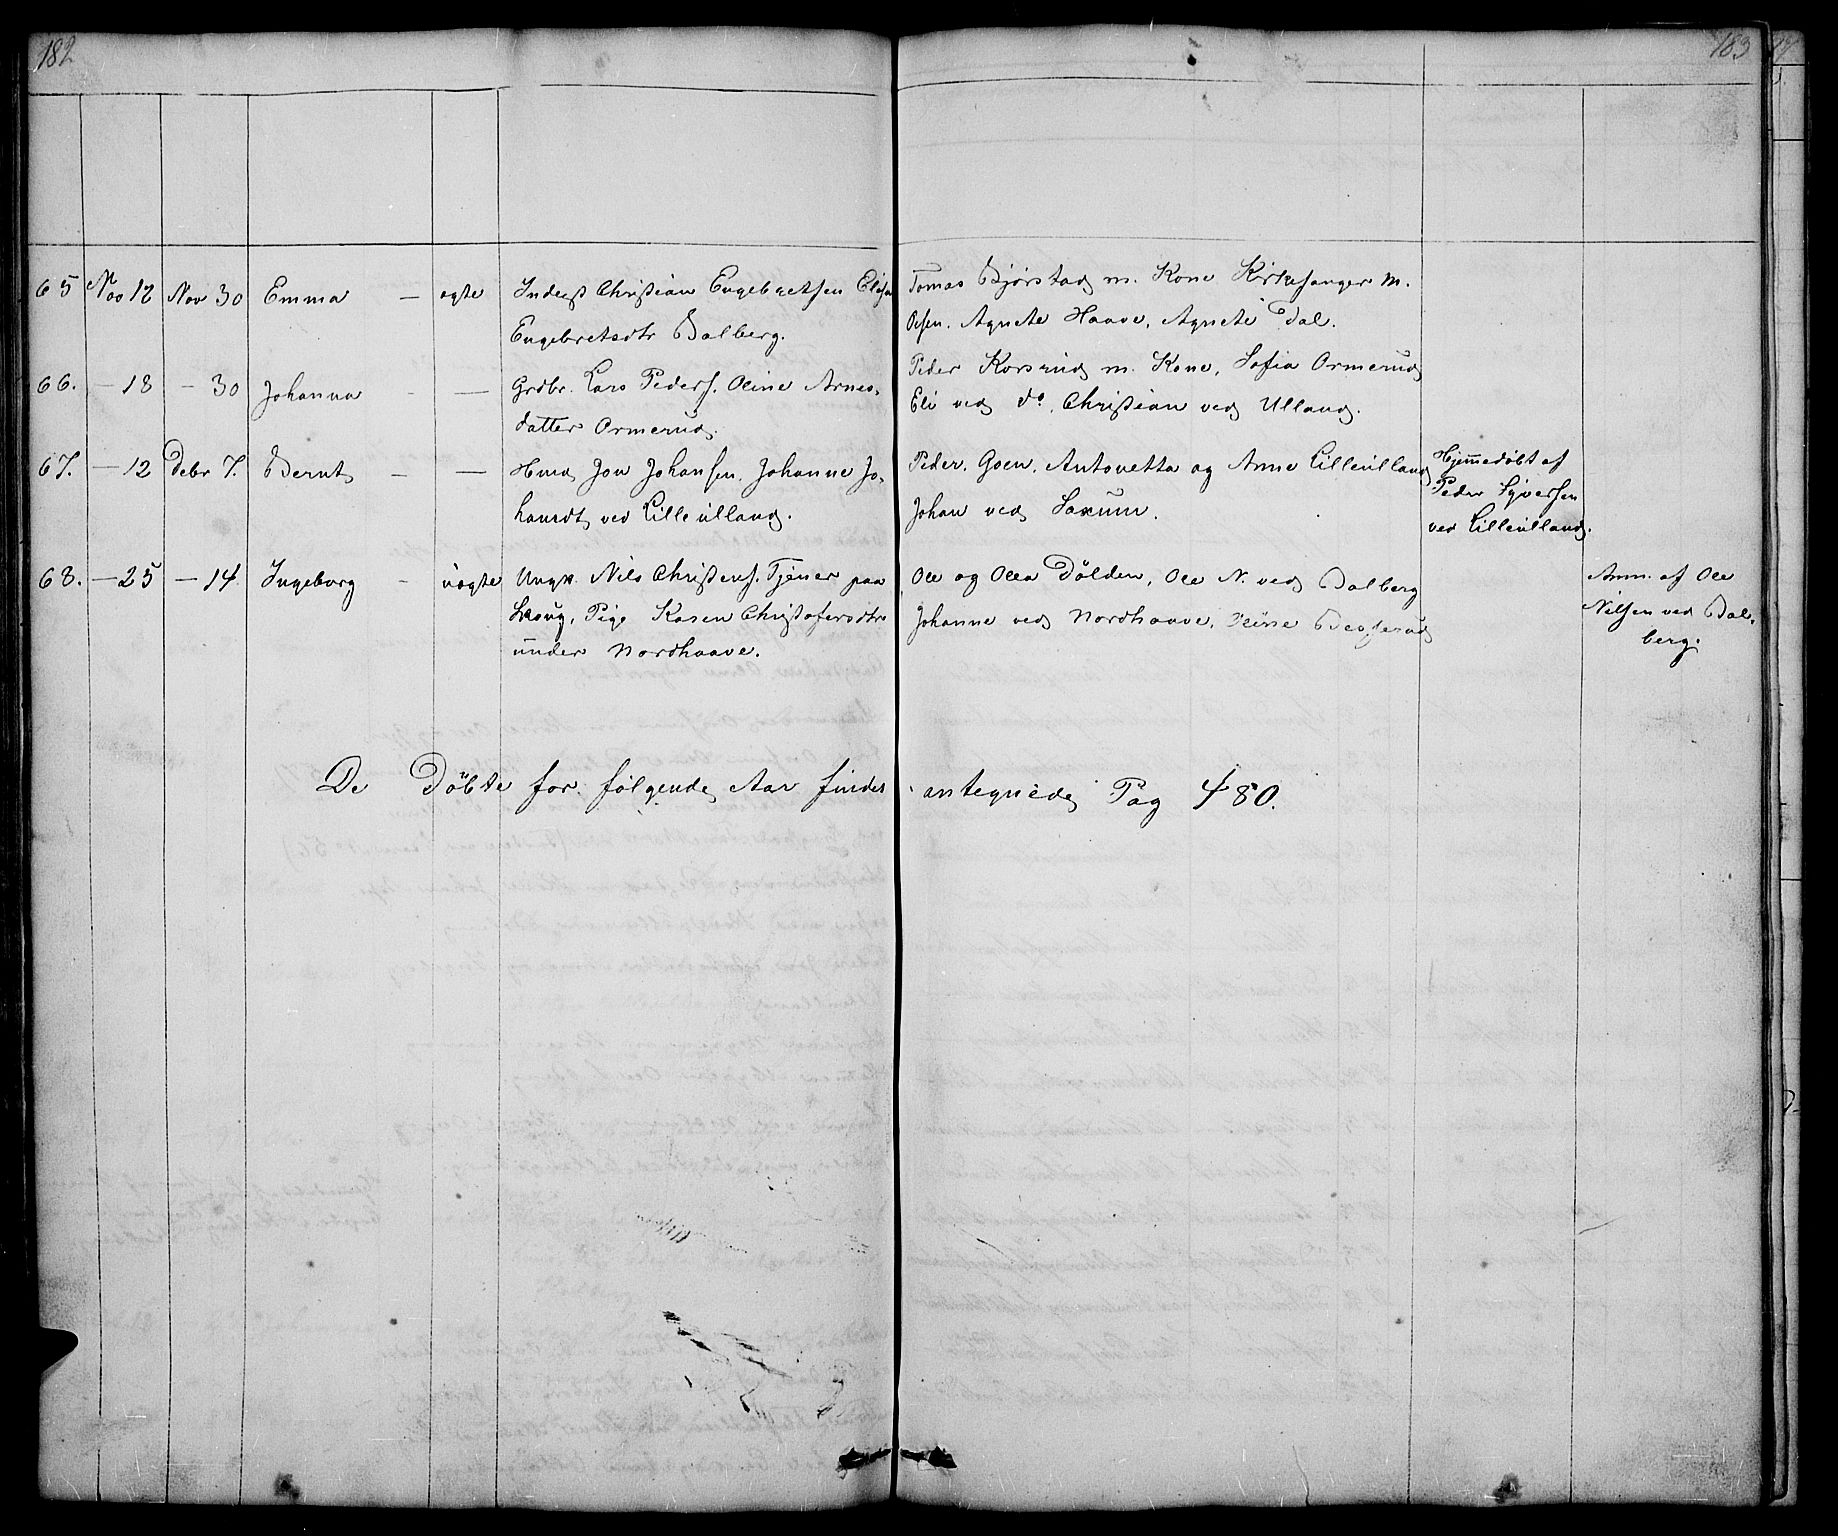 182
183
65 Nov 12 Nov 30 Emma — ægte Inderst Christian Engebretsen Elisa
Engebretsdtr Dalberg.
Tomas Bjørstad m. Kone Kirkesanger M.
Olsen. Agnete Haave, Agnete Dal.
66. — 18 — 30 Johanna - — Grdbr. Lars Peders. Oline Arnes-
datter Ormerud.
Peder Korsrud m. Kone, Sofia Ormerud
Eli ved do, Christian ved Ulland.
67. — 12 Debr 7. Bernt - — Hmd Jon Johansen. Johanne Jo-
hansdt ved Lilleulland.
Peder. Goen. Antonetta og Anne Lilleulland
Johan ved Saxum.
Hjemmedøbt af
Peder Syversen
ved Lilleulland.
68. — 25 — 14 Ingeborg - uægte Ungk. Nils Christens. Tjener paa
Skoug, Pige Karen Christofersdtr
under Nordhaave.
Ole og Olea Dölden, Ole N. ved Dalberg
Johanne ved Nordhaave,
Anm. af Ole
Nilsen ved Dal-
berg.
De Döbte for følgende Aar findes antegnede Pag 480.